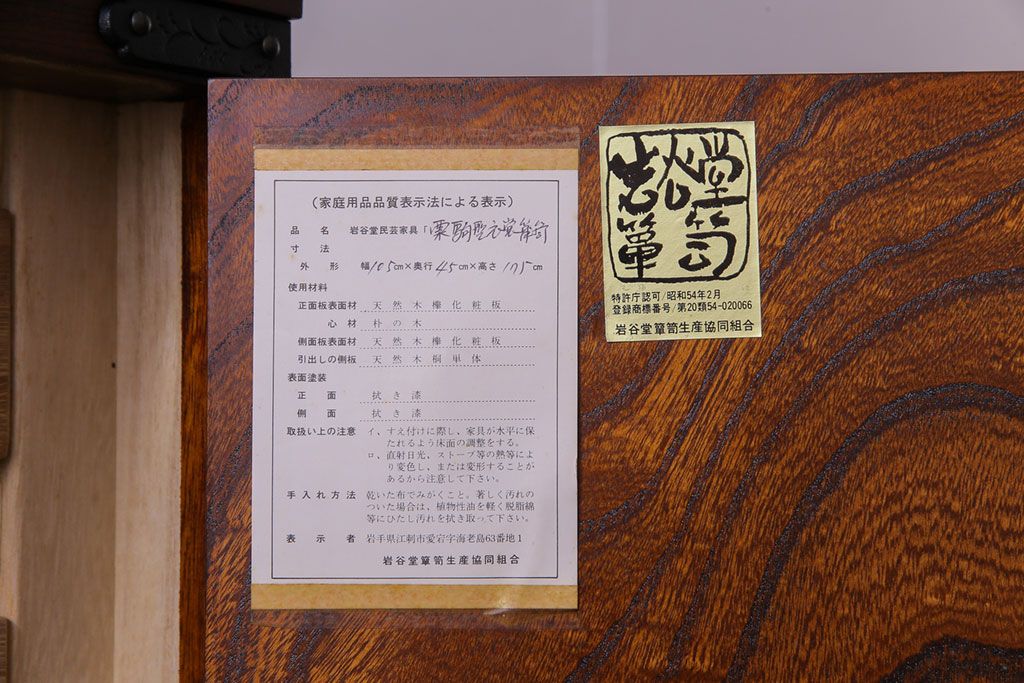 (家庭用品品質表示法による表示)
品 名 岩谷堂民芸家具「栗駒型衣裳箪笥
寸 法
外 形 幅105cm×奥行45cm×高さ175cm
使用材料
正面板表面材 天然木欅化粧板
心 材 朴の木
側面板表面材 天然木欅化粧板
引出しの側板 天然木桐単体
表面塗装
正 面 拭き漆
側 面 拭き漆
取扱い上の注意 イ、すえ付けに際し、家具が水平に保
たれるよう床面の調整をする。
ロ、直射日光、ストーブ等の熱等によ
り変色し、または変形することが
あるから注意して下さい。
手入れ方法 乾いた布でみがくこと。著しく汚れの
ついた場合は、植物性油を軽く脱脂綿
等にひたし汚れを拭き取って下さい。
表 示 者 岩手県江刺市愛宕字海老島63番地1
岩谷堂簞笥生産協同組合
岩谷堂簞笥
特許庁認可/昭和54年2月
登録商標番号/第20類54-020066
岩谷堂簞笥生産協同組合